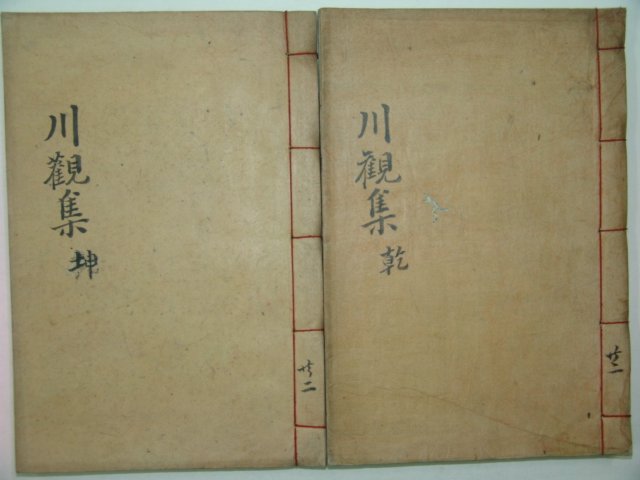 川觀集 乾
共二
川觀集 坤
共二